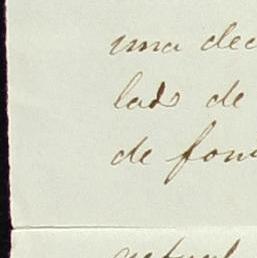 una dec
lad de
de fom